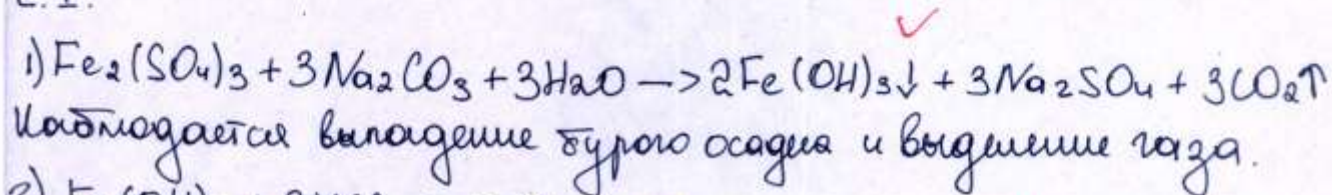 1) Fe₂(SO₄)₃ + 3Na₂CO₃ + 3H₂O —> 2Fe(OH)₃↓ + 3Na₂SO₄ + 3CO₂↑
Наблюдается выпадение бурого осадка и выделение газа.